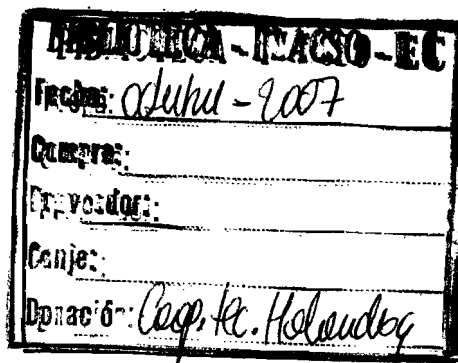 BIBLIOTECA - FLACSO - EC
Fecha: octubre - 2007
Compra:
Proveedor:
Canje:
Donación: Coop. tec. Holandesa